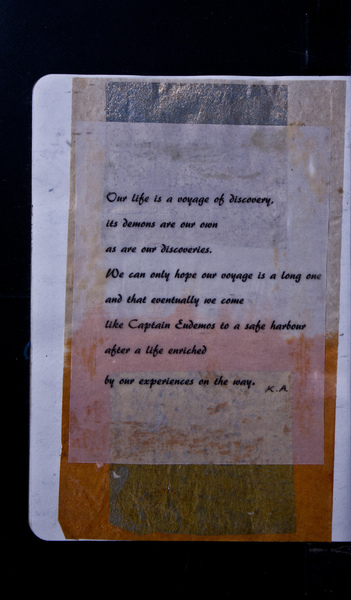 Our life is a voyage of discovery,
its demons are our own
as are our discoveries.
We can only hope our voyage is a long one
and that eventually we come
like Captain Eudemos to a safe harbour
after a life enriched
by our experiences on the way.
K.A